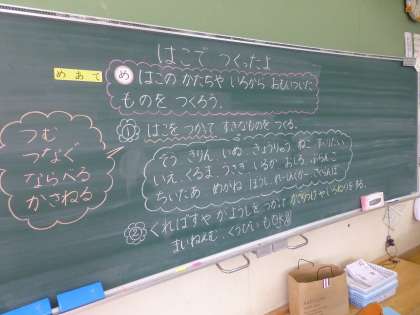 はこで つくったよ
めあて
め はこの かたちや いろから おもいついた
ものを つくろう。
① はこを つかって すきなものを つくる。
つむ
つなぐ
ならべる
かさねる
ぞう きりん いぬ きょうりゅう ねこ
いえ くるま うさぎ いるか おしろ ぶらんこ
ちいたあ めがね ぼうし
② くれぱすや がようしを つかって かざりつけや